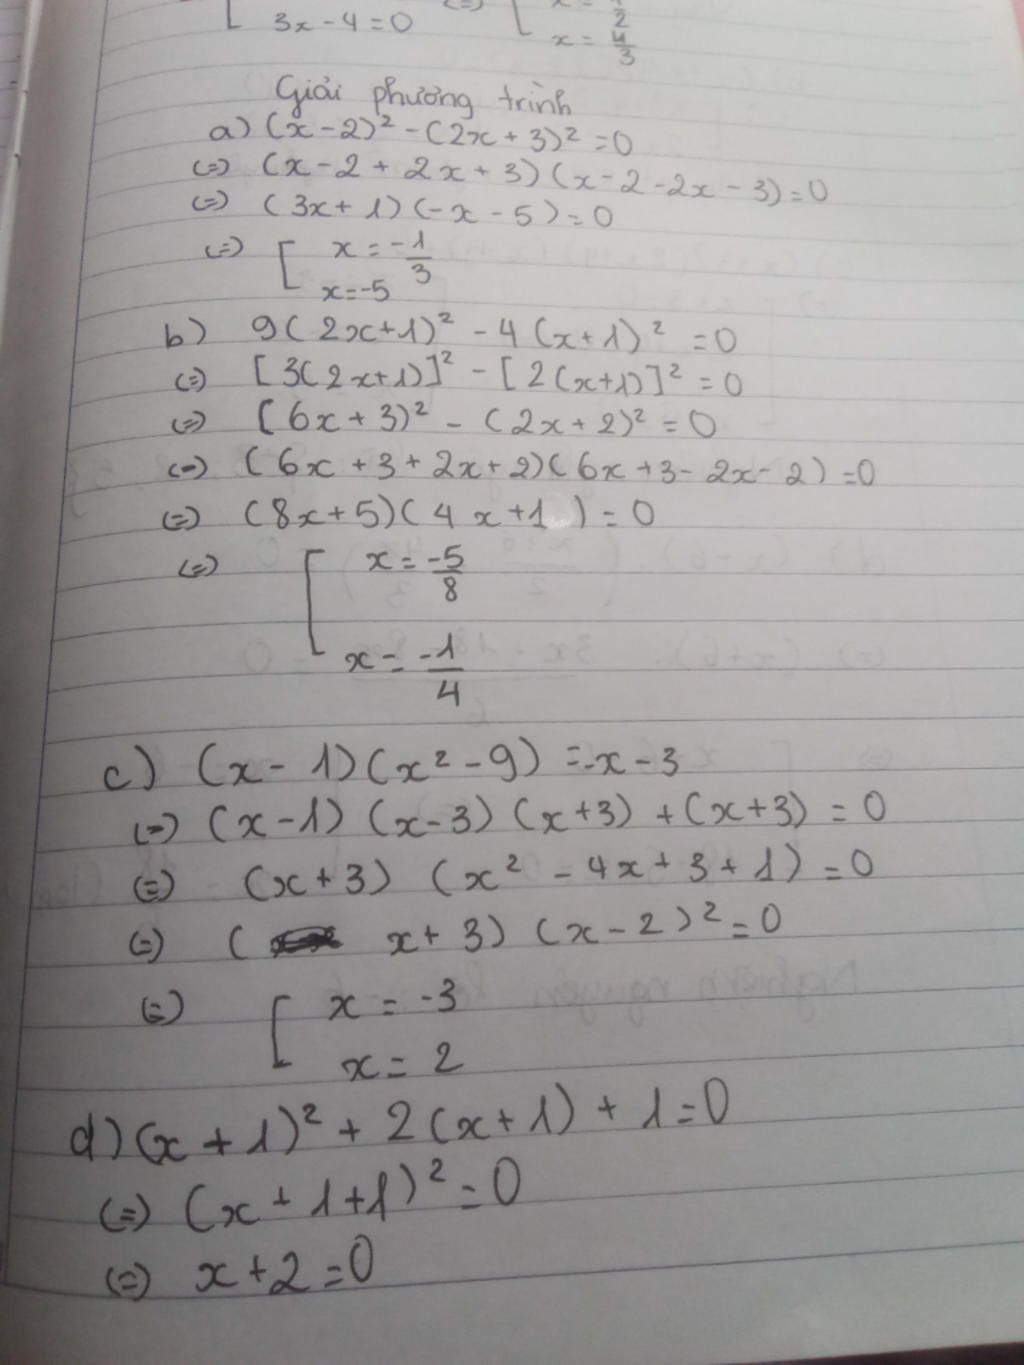 3x - 4 = 0 (=) [ x = 1/2
x = 4/3
Giải phương trình
a) (x - 2)² - (2x + 3)² = 0
(=) (x - 2 + 2x + 3) (x - 2 - 2x - 3) = 0
(=) (3x + 1) (-x - 5) = 0
(=) [ x = -1/3
x = -5
b) 9(2x+1)² - 4(x+1)² = 0
(=) [3(2x+1)]² - [2(x+1)]² = 0
(=) [6x + 3)² - (2x + 2)² = 0
(=) (6x + 3 + 2x + 2)(6x + 3 - 2x - 2) = 0
(=) (8x + 5)(4x + 1) = 0
(=) [ x = -5/8
x = -1/4
c) (x - 1)(x² - 9) = -x - 3
(=) (x - 1) (x - 3) (x + 3) + (x + 3) = 0
(=) (x + 3) (x² - 4x + 3 + 1) = 0
(=) ( x + 3) (x - 2)² = 0
(=) [ x = -3
x = 2
d) (x + 1)² + 2(x + 1) + 1 = 0
(=) (x + 1 + 1)² = 0
(=) x + 2 = 0